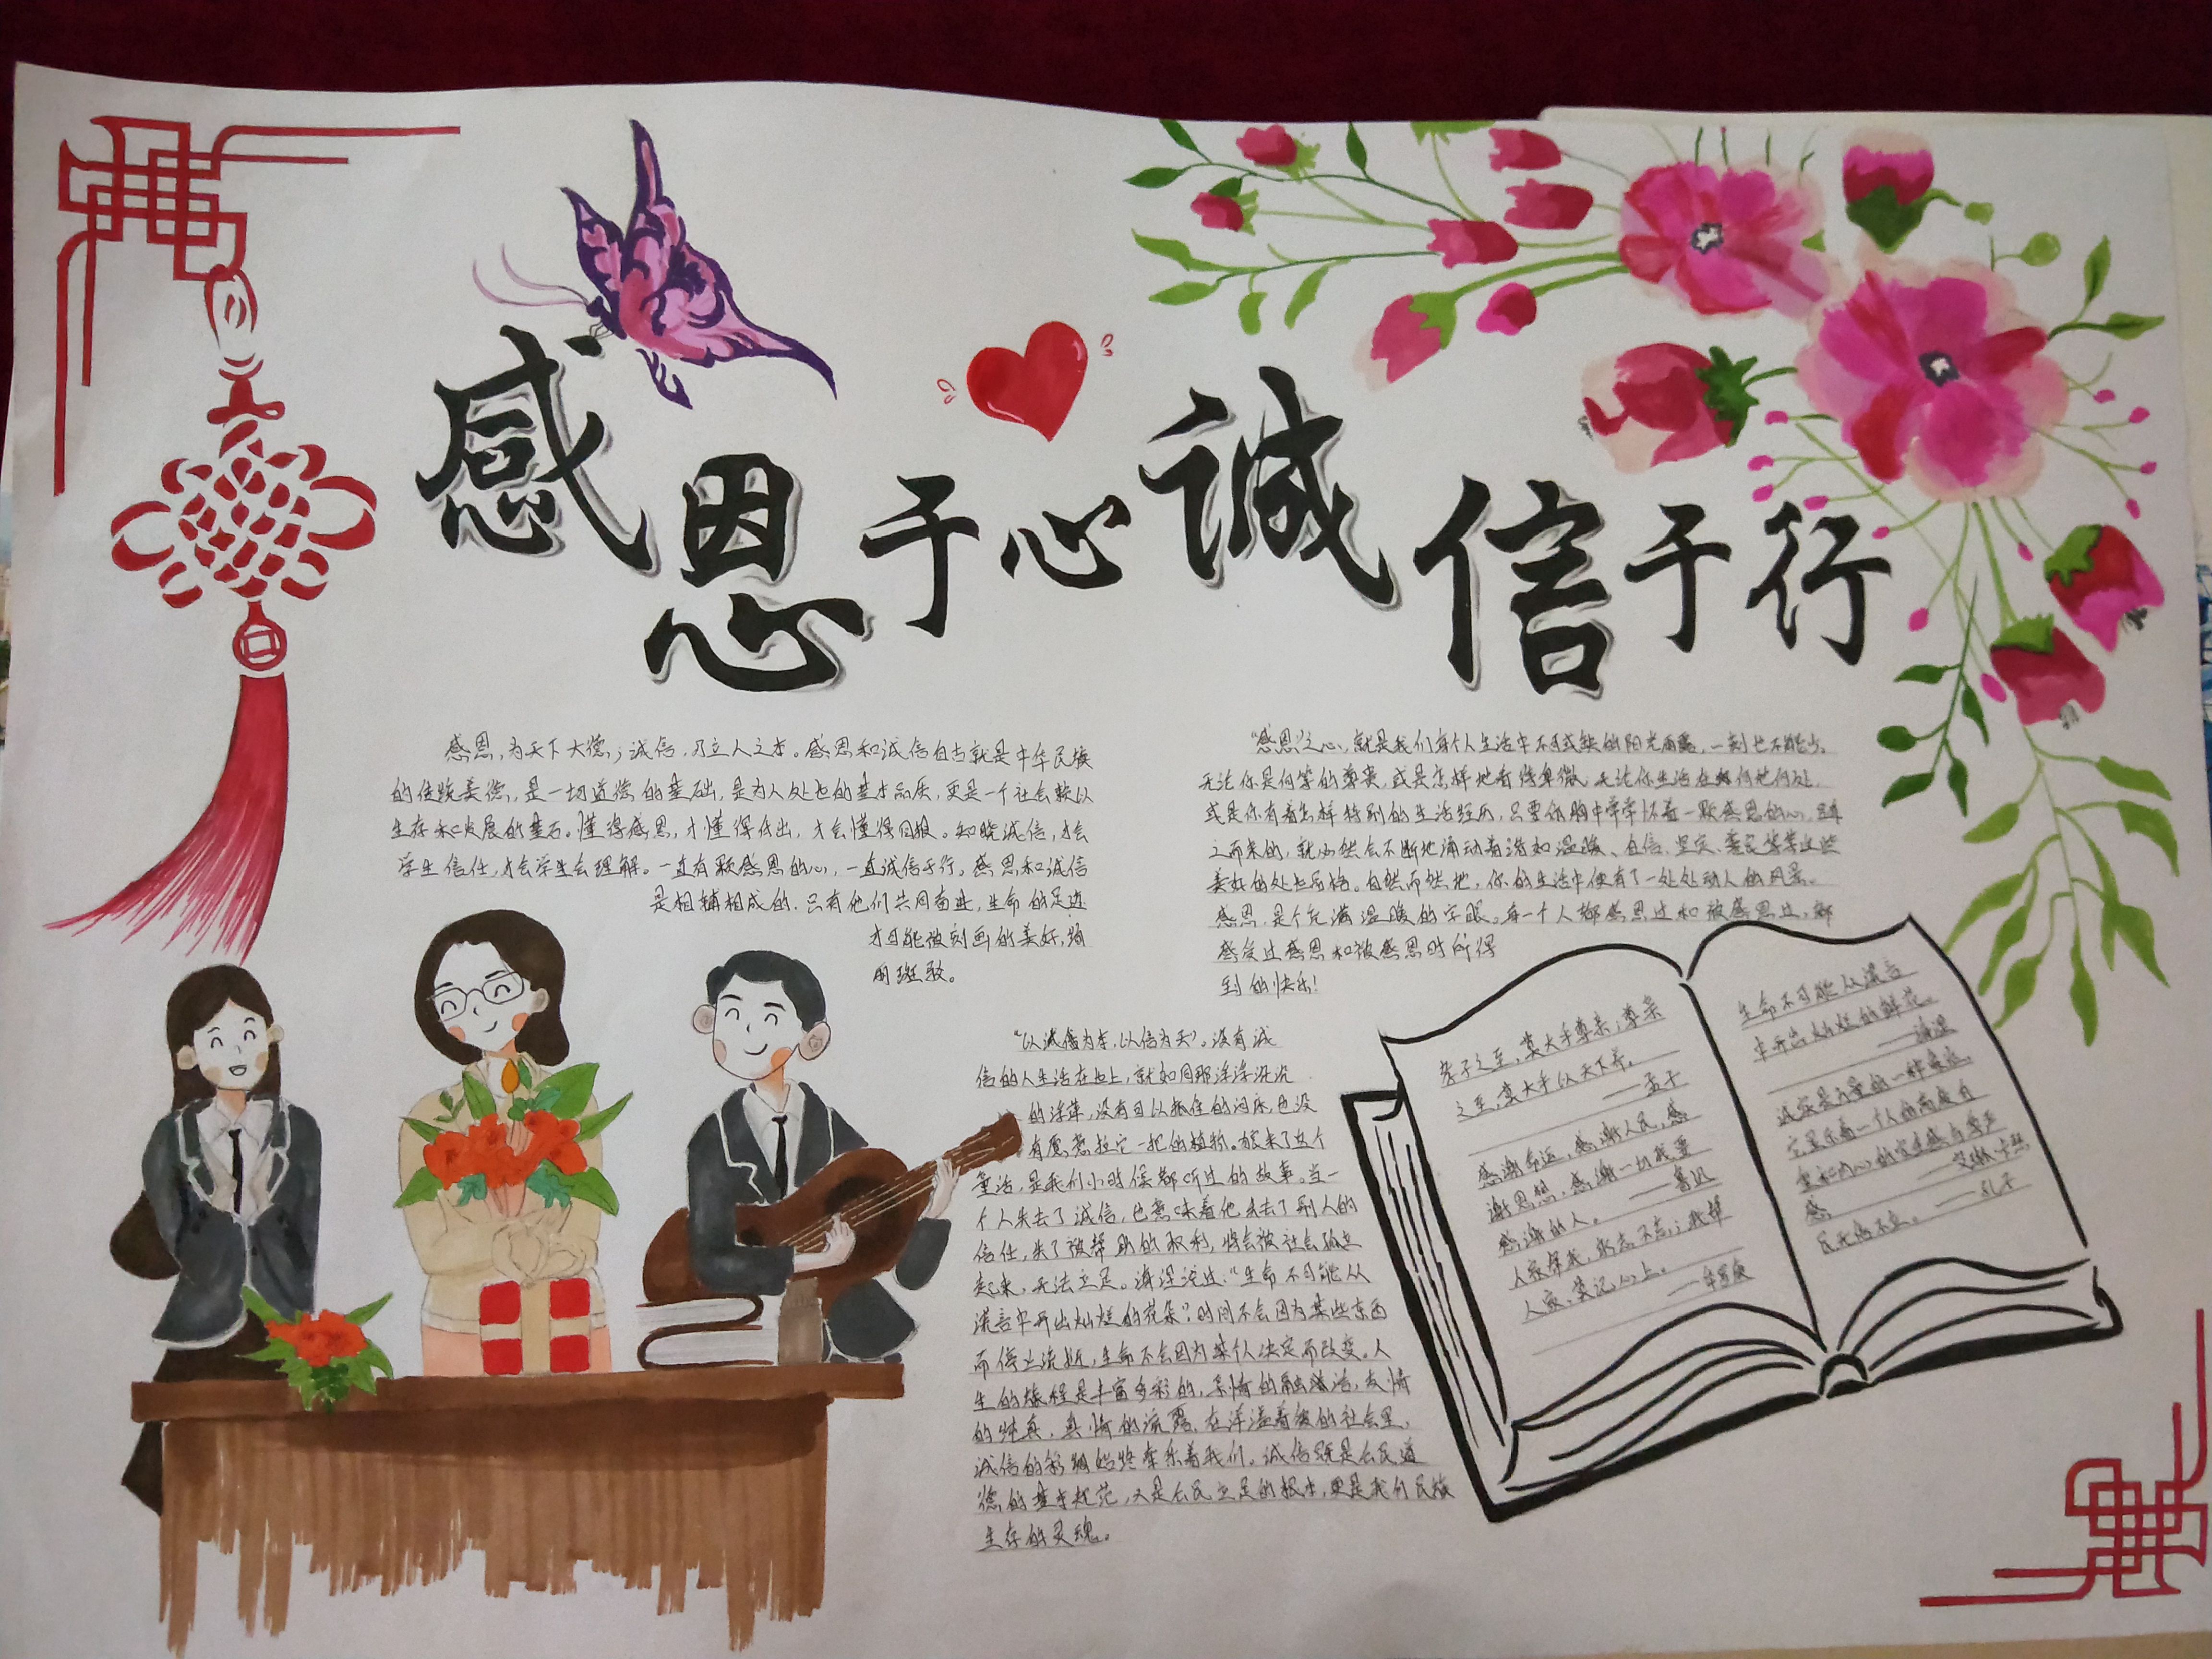 感恩于心誠信于行
感恩，为天下大德；诚信，乃立人之本。感恩和诚信自古就是中华民族
的传统美德，是一切道德的基础，是为人处世的基本品质，更是一个社会赖以
生存和发展的基石。懂得感恩，才懂得付出，才会懂得回报。知晓诚信，才会
学生信任，才会学生会理解。一直有颗感恩的心，一直诚信于行。感恩和诚信
是相辅相成的，只有他们共同奋进，生命的足迹
才可能被刻画的美好，绚
丽斑驳。
“感恩”之心，就是我们每个人生活中不可或缺的阳光雨露，一刻也不能少。
无论你是何等的尊贵，或是怎样地看待卑微，无论你生活在何地何处，
或是你有着怎样特别的生活经历，只要你胸中常常怀着一颗感恩的心，随
之而来的，就必然会不断地涌动着诸如温暖、自信、坚定、善良等等这些
美好的处世品格。自然而然地，你的生活中便有了一处处动人的风景。
感恩，是个充满温暖的字眼。每一个人都感恩过和被感恩过，都
感受过感恩和被感恩时所得
到的快乐！
“以诚信为本，以信为天”。没有诚
信的人生活在世上，就如同那浮浮沉沉
的浮萍，没有可以抓住的河床，也没
有愿意拉它一把的植物。狼来了这个
童话，是我们小时候都听过的故事。当一
个人失去了诚信，也意味着他失去了别人的
信任，失了被帮助的权利，将会被社会孤立
起来，无法立足。海涅说过：“生命不可能从
谎言中开出灿烂的花朵”？时间不会因为某些东西
而停止流逝，生命不会因为某个人决定而改变。人
生的旅程是丰富多彩的，亲情的融洽，友情
的纯真，真情的流露，在洋溢着彼的社会里，
诚信的彩翅始终牵系着我们。诚信既是公民道
德的基本规范，又是公民立足的根本，更是我们民族
生存的灵魂。
孝子之至，莫大乎尊亲；尊亲
之至，莫大乎以天下养。
——孟子
感谢命运，感谢人民，感
谢思想，感谢一切我要
感谢的人。——鲁迅
人家帮我，永志不忘；我帮
人家，莫记心上。
——华罗庚
生命不可能从谎言
中开出灿烂的鲜花。
——海涅
诚实是力量的一种象征，
它显示着一个人的高度自
重和内心的安全感与尊严
感。——艾琳·卡瑟
民无信不立。——孔子